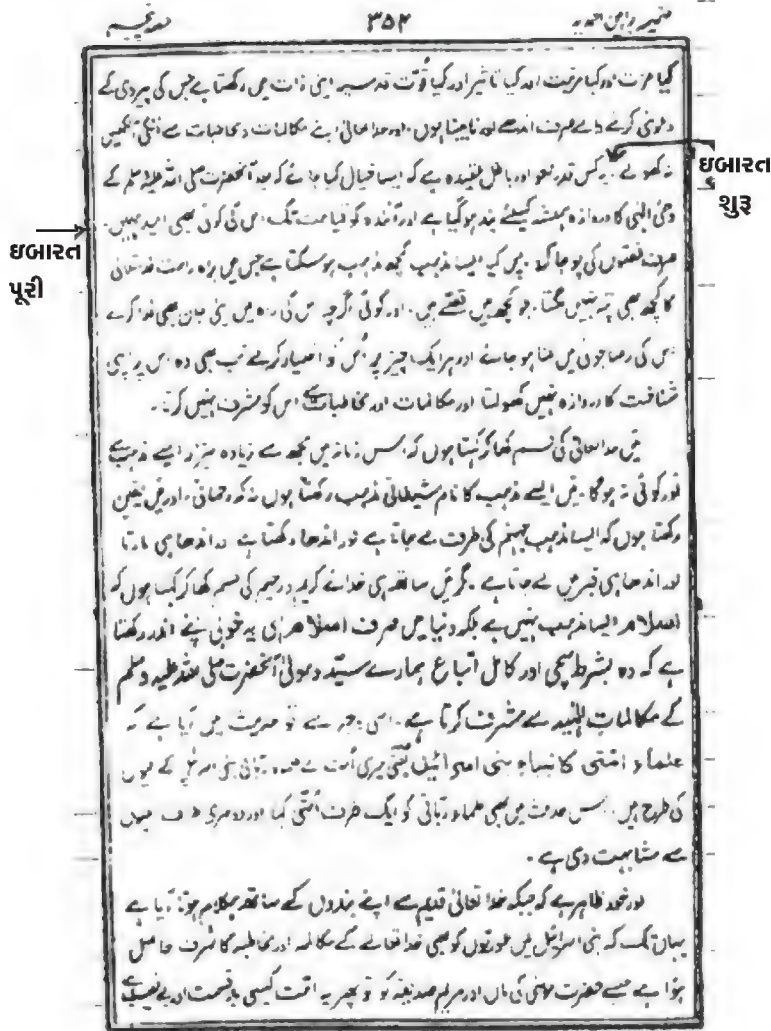 ضمیمہ براہین احمدیہ ۳۵۴ حصہ پنجم
کیا عزت اور کیا مرتبت اور کیا تاثیر اور کیا قوت قدسیہ اپنی ذات میں رکھتا ہے جس کی پیروی کے
دعویٰ کرنے والے صرف اندھے اور نابینا ہوں۔ اور خدا تعالیٰ اپنے مکالمات و مخاطبات سے انکی آنکھیں
نہ کھولے۔ یہ کس قدر لغو اور باطل عقیدہ ہے کہ ایسا خیال کیا جائے کہ بعد آنحضرت صلی اللہ علیہ وسلم کے
ઇબારત શુરૂ
وحی الٰہی کا دروازہ ہمیشہ کیلئے بند ہوگیا ہے اور آئندہ کو قیامت تک اس کی کوئی بھی امید نہیں۔
ઇબારત પૂરી
صرف قصوں کی پوجا کرو۔ پس کیا ایسا مذہب کچھ مذہب ہوسکتا ہے جس میں براہ راست خدا تعالیٰ
کا کچھ بھی پتہ نہیں لگتا۔ جو کچھ ہیں قصے ہیں۔ اور کوئی اگرچہ اس کی راہ میں اپنی جان بھی فدا کرے
اس کی رضا جوئی میں فنا ہو جائے اور ہر ایک چیز پر اُس کو اختیار کرلے تب بھی وہ اس پر اپنی
شناخت کا دروازہ نہیں کھولتا اور مکالمات اور مخاطبات سے اس کو مشرف نہیں کرتا۔
میں خدا تعالیٰ کی قسم کھا کر کہتا ہوں کہ اس زمانہ میں مجھ سے زیادہ بیزار ایسے مذہب سے
اور کوئی نہ ہوگا۔ میں ایسے مذہب کا نام شیطانی مذہب رکھتا ہوں نہ کہ رحمانی۔ اور میں یقین
رکھتا ہوں کہ ایسا مذہب جہنم کی طرف لے جاتا ہے اور اندھا رکھتا ہے اور اندھا ہی مارتا
اور اندھا ہی قبر میں لے جاتا ہے۔ مگر میں ساتھ ہی خدائے کریم و رحیم کی قسم کھا کر کہتا ہوں کہ
اسلام ایسا مذہب نہیں ہے بلکہ دنیا میں صرف اسلام ہی یہ خوبی اپنے اندر رکھتا
ہے کہ وہ بشرط سچی اور کامل اتباع ہمارے سید و مولیٰ آنحضرت صلی اللہ علیہ وسلم
کے مکالمات الٰہیہ سے مشرف کرتا ہے۔ اسی وجہ سے تو حدیث میں آیا ہے کہ
علماء امتی کانبیاء بنی اسرائیل یعنی میری اُمت کے علماء ربانی بنی اسرائیل کے نبیوں
کی طرح ہیں۔ اس حدیث میں بھی علماء ربانی کو ایک طرف اُمتی کہا اور دوسری طرف نبیوں
سے مشابہت دی ہے۔
اور خود ظاہر ہے کہ جبکہ خدا تعالیٰ قدیم سے اپنے بندوں کے ساتھ ہمکلام ہوتا آیا ہے
یہاں تک کہ بنی اسرائیل میں عورتوں کو بھی خدا تعالےٰ کے مکالمہ اور مخاطبہ کا شرف حاصل
ہوا ہے جیسے حضرت موسیٰ کی ماں اور مریم صدیقہ کو تو پھر یہ امت کیسی بدقسمت اور بے نصیب ہے